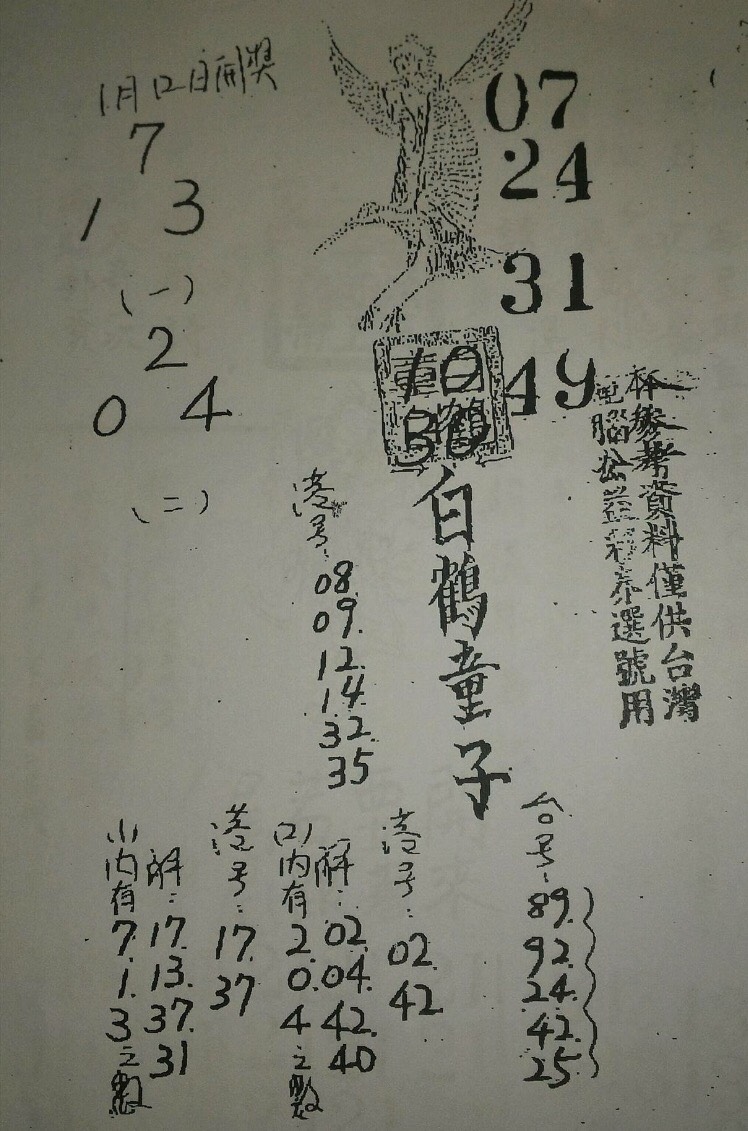 1月12日開獎
7
1 3
(一)
2
0 4
(二)
07
24
31
49
10
30
白鶴童子
本參考資料僅供台灣
電腦公益彩券選號用
港号:
08.
09.
12.
14.
32.
35
台号:
89.
92.
24.
42.
25.
港号:
02.
42
解:
02.
04.
42.
40
(2)內有
2.
0.
4
之數
港号:
17.
37
解:
17.
13.
37.
31
(1)內有
7.
1.
3
之數